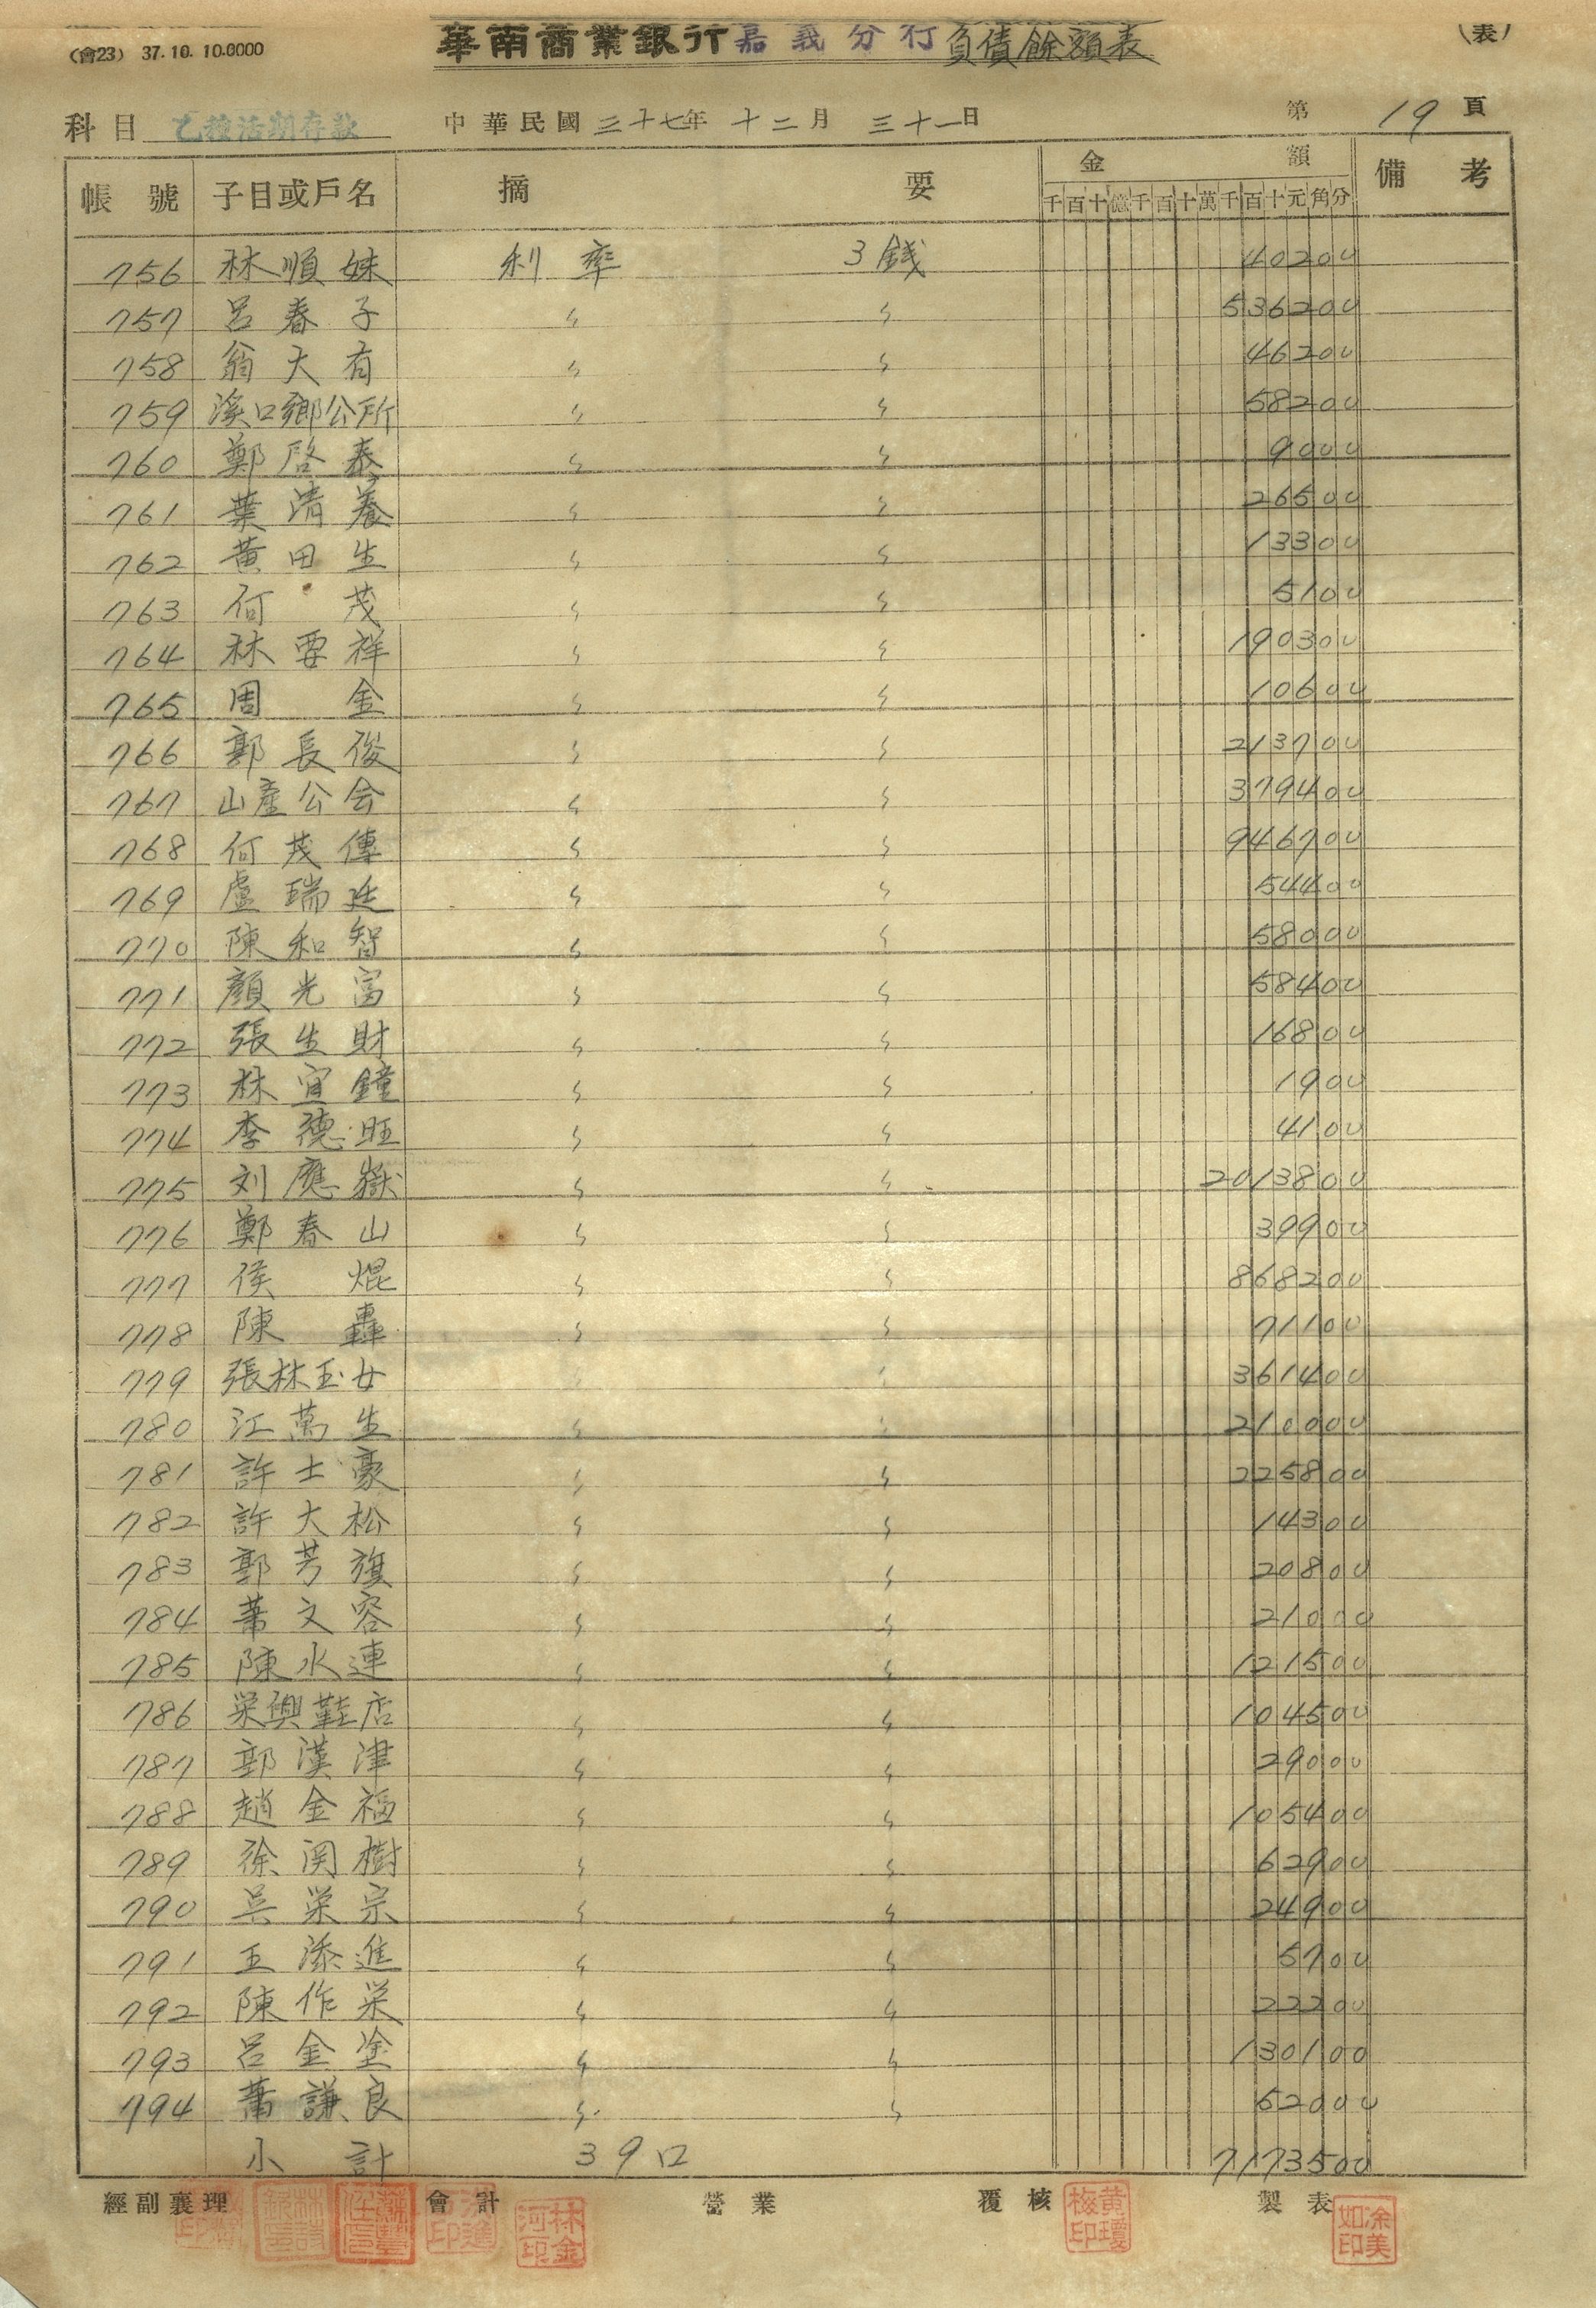 (會23) 37.10.10.0000
華南商業銀行嘉義分行負債餘額表
(表)
科目 乙種活期存款 中華民國三十七年十二月三十一日 第19頁
帳號 子目或戶名 摘要 金額 備考
千百十億千百十萬千百十元角分
756 林順妹 利率 3錢 40200
757 呂春子 〃 〃 536200
758 翁大有 〃 〃 46200
759 溪口鄉公所 〃 〃 58200
760 鄭啓泰 〃 〃 9000
761 葉清養 〃 〃 26500
762 黃田生 〃 〃 13300
763 何茂 〃 〃 5100
764 林要祥 〃 〃 190300
765 周金 〃 〃 10600
766 郭長俊 〃 〃 213700
767 山產公会 〃 〃 379400
768 何茂傳 〃 〃 946700
769 盧瑞廷 〃 〃 54400
770 陳和智 〃 〃 58000
771 顏光富 〃 〃 58400
772 張生財 〃 〃 16800
773 林宜鐘 〃 〃 1900
774 李德旺 〃 〃 4100
775 刘應嶽 〃 〃 2013800
776 鄭春山 〃 〃 39900
777 侯焜 〃 〃 868200
778 陳轟 〃 〃 71100
779 張林玉女 〃 〃 361400
780 江萬生 〃 〃 210000
781 許士豪 〃 〃 225800
782 許大松 〃 〃 14300
783 郭芳旗 〃 〃 20800
784 葉文容 〃 〃 21000
785 陳水連 〃 〃 121500
786 栄興鞋店 〃 〃 104500
787 郭漢津 〃 〃 29000
788 趙金福 〃 〃 105400
789 徐関樹 〃 〃 62900
790 吳栄宗 〃 〃 24900
791 王添進 〃 〃 5700
792 陳作栄 〃 〃 22200
793 呂金塗 〃 〃 130100
794 蕭謙良 〃 〃 62000
小計 39口 7173500
經副襄理 會計 營業 覆核 製表
林金河印 黃瓊梅印 涂美如印